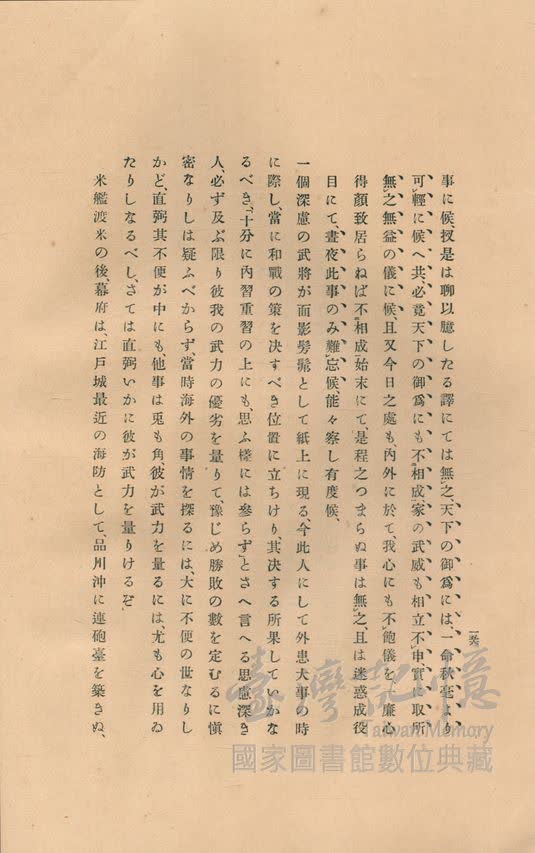 事に候、扨是は聊以臆したる譯にては無之、天下の御爲には、一命秋毫より
可輕に候へ共、必竟天下の御爲にも不相成、家の武威も相立不申、實に取所
無之無益の儀に候、且又今日之處も、内外に於て、我心にも不飽儀を、廉心
得顏致居らねば不相成始末にて、是程之つまらぬ事は無之、且は迷惑成役
目にて、晝夜此事のみ難忘候、能々察し有度候、
一個深慮の武將が面影髣髴として紙上に現る、今此人にして外患大事の時
に際し、當に和戰の策を決すべき位置に立ちけり、其決する所果していかな
るべき、「十分に内習重習の上にも、思ふ樣には參らず」とさへ言へる思慮深き
人、必ず及ぶ限り彼我の武力の優劣を量りて、豫じめ勝敗の數を定むるに愼
密なりしは疑ふべからず、當時海外の事情を探るには、大に不便の世なりし
かど、直弼其不便が中にも、他事は兎も角彼が武力を量るには、尤も心を用ゐ
たりしなるべし、さては直弼いかに彼が武力を量りけるぞ、
米艦渡來の後、幕府は、江戸城最近の海防として、品川沖に連砲臺を築きぬ、
臺灣記憶
Taiwan Memory
國家圖書館數位典藏